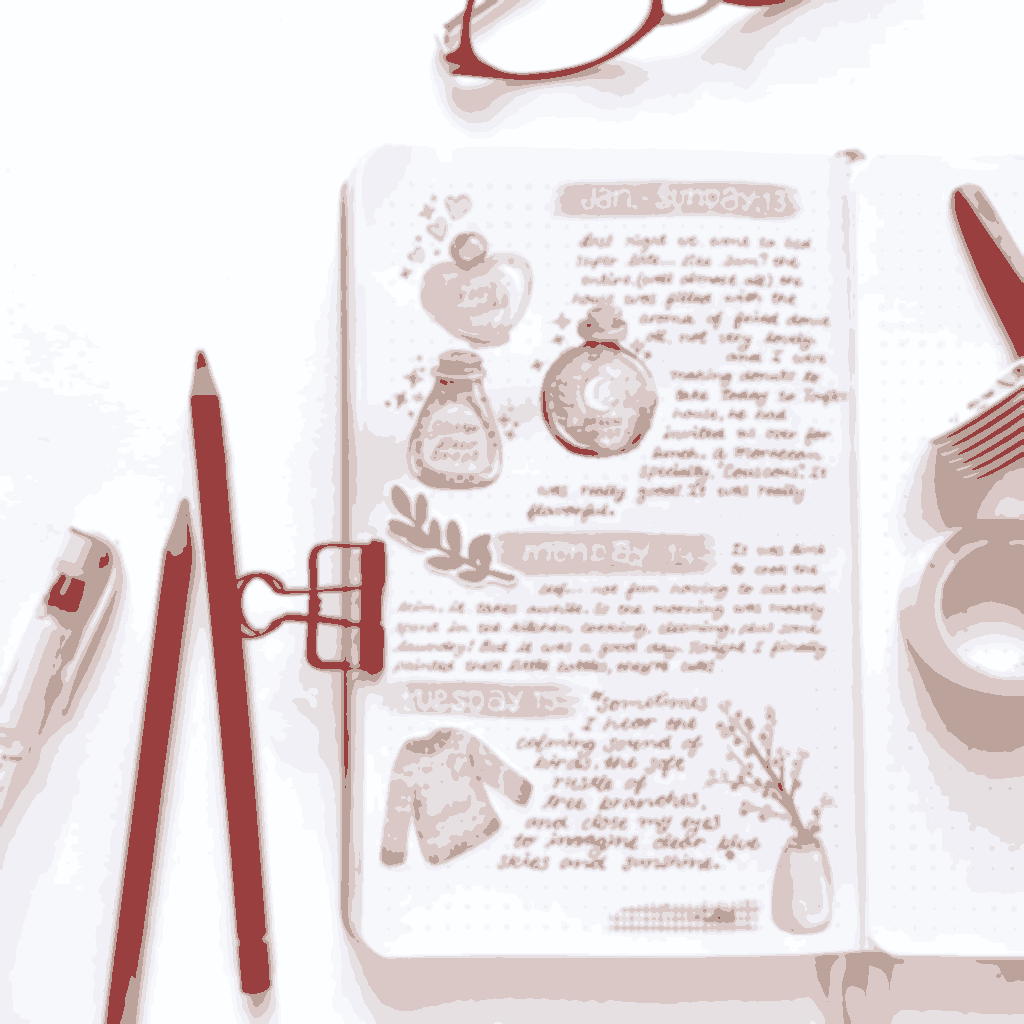 Jan. - Sunday, 13
last night we went to bed
super late... the
entire (well almost all) the
house was filled with the
aroma of fried
not very lovely
and I were
making donuts to
take today to
house, he had
invited us over for
lunch, a Moroccan
specialty, "Couscous". It
was really good. It was really
flavorful.
monday 14
It was
to
not fun having to out and
it takes awhile. So the morning was mostly
spent in the kitchen cooking, cleaning, plus some
laundry! But it was a good day. Tonight I finally
painted these little bottles, they're cute!
Tuesday 15
"Sometimes
I hear the
calming sound of
birds, the soft
rustle of
tree branches,
and close my eyes
to imagine clear blue
skies and sunshine."